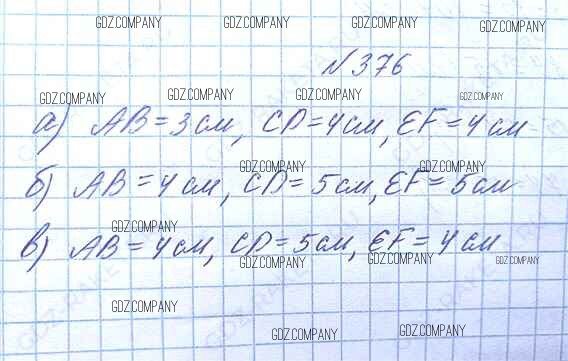 GDZ.COMPANY GDZ.COMPANY GDZ.COMPANY GDZ.COMPANY
№376
GDZ.COMPANY GDZ.COMPANY GDZ.COMPANY GDZ.COMPANY
а) AB = 3 см, CD = 4 см, EF = 4 см
GDZ.COMPANY GDZ.COMPANY
б) AB = 4 см, CD = 5 см, EF = 5 см
GDZ.COMPANY
в) AB = 4 см, CD = 5 см, EF = 4 см
GDZ.COMPANY GDZ.COMPANY GDZ.COMPANY
GDZ.COMPANY
GDZ.COMPANY GDZ.COMPANY